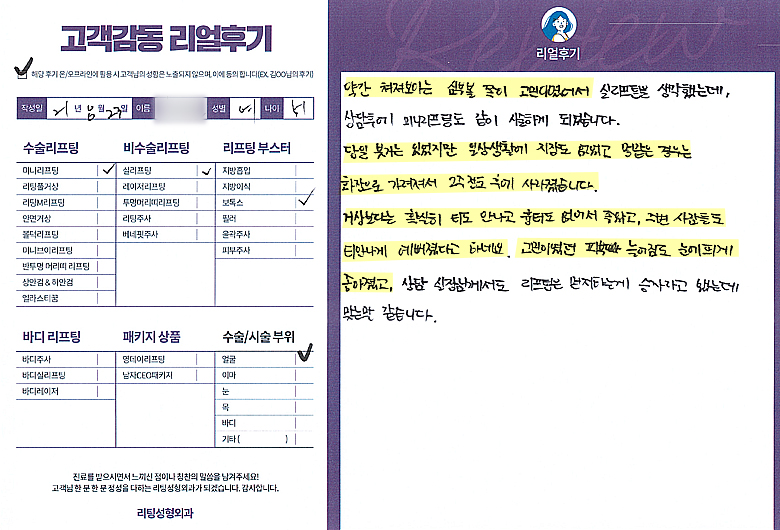 고객감동 리얼후기
해당 후기 온/오프라인에 활용 시 고객님의 성함은 노출되지 않으며, 이에 동의 합니다(EX. 김OO님의 후기)
작성일 21년 10월 23일 이름 성별 여 나이
수술리프팅 비수술리프팅 리프팅 부스터
미니리프팅 실리프팅 지방흡입
리팅풀거상 레이저리프팅 지방이식
리팅M리프팅 투명머리띠리프팅 보톡스
안면거상 리팅주사 필러
볼턱리프팅 베네핏주사 윤곽주사
미니브이리프팅 피부주사
반투명 머리띠 리프팅
상안검 & 하안검
엘라스티꿈
바디 리프팅 패키지 상품 수술/시술 부위
바디주사 원데이리프팅 얼굴
바디실리프팅 남자CEO패키지 이마
바디레이저 눈
목
바디
기타 ( )
진료를 받으시면서 느끼신 점이나 칭찬의 말씀을 남겨주세요!
고객님 한 분 한 분 정성을 다하는 리팅성형외과가 되겠습니다. 감사합니다.
리팅성형외과
리얼후기
약간 쳐져보이는 심부볼 쪽이 고민이였어서 실리프팅을 생각했는데,
상담후에 미니리프팅도 같이 시술하게 되었습니다.
당일 붓기는 있었지만 일상생활에 지장도 없었고 멍같은 경우는
화장으로 가려져서 2주정도 후에 사라졌습니다.
거상보다는 확실히 티도 안나고 흉터도 없어서 좋았고, 주변 사람들도
티안나게 예뻐졌다고 하네요. 고민이였던 피부 늘어짐도 눈에띄게
좋아졌고, 상담 실장님께서도 리프팅은 먼저하는게 승자라고 했는데
맞는말 같습니다.